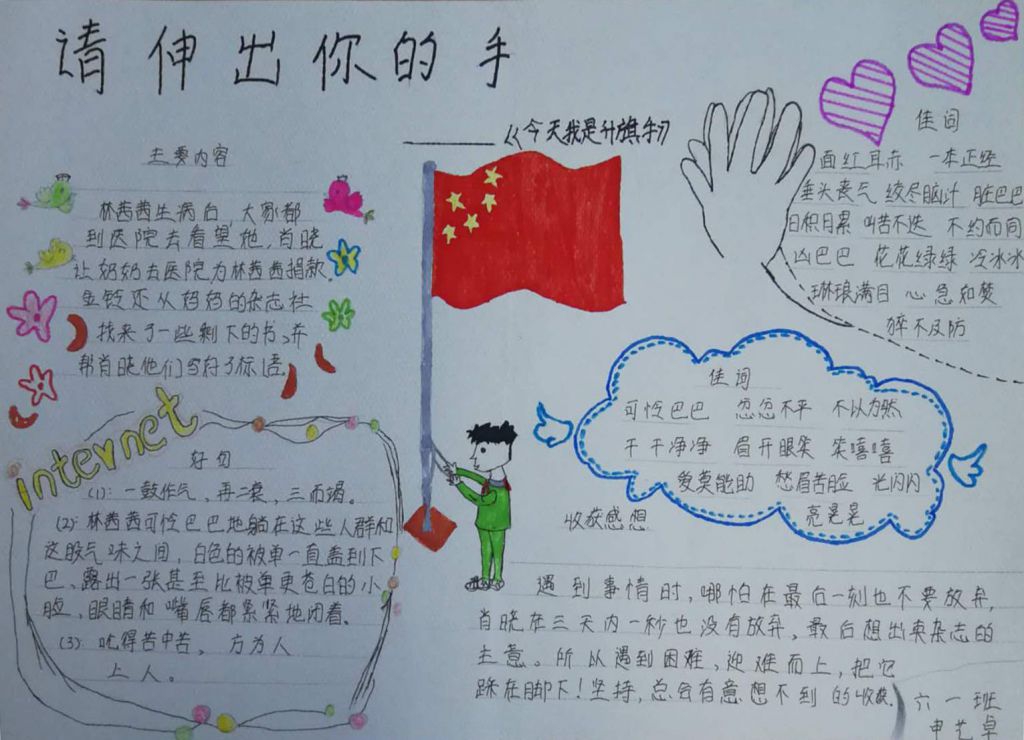 请伸出你的手
——《今天我是升旗手》
主要内容
林茜茜生病后，大家都
到医院去看望她，肖晓
让奶奶去医院为林茜茜捐款，
金铃还从妈妈的杂志社
找来了一些剩下的书，并
帮肖晓他们写好了标语。
internet
好句
(1): 一鼓作气，再二衰，三而竭。
(2): 林茜茜可怜巴巴地躺在这些人群和
这股气味之间，白色的被单一直盖到下
巴、露出一张甚至比被单更苍白的小
脸，眼睛和嘴唇都紧紧地闭着。
(3): 吃得苦中苦，方为人
上人。
佳词
面红耳赤 一本正经
垂头丧气 绞尽脑汁 脏巴巴
日积月累 叫苦不迭 不约而同
凶巴巴 花花绿绿 冷冰冰
琳琅满目 心急如焚
猝不及防
佳词
可怜巴巴 忿忿不平 不以为然
干干净净 眉开眼笑 笑嘻嘻
爱莫能助 愁眉苦脸 光闪闪
亮晃晃
收获感想
遇到事情时，哪怕在最后一刻也不要放弃，
肖晓在三天内一秒也没有放弃，最后想出卖杂志的
主意。所以遇到困难，迎难而上，把它
踩在脚下！坚持，总会有意想不到的收获。
六一班
申艺卓